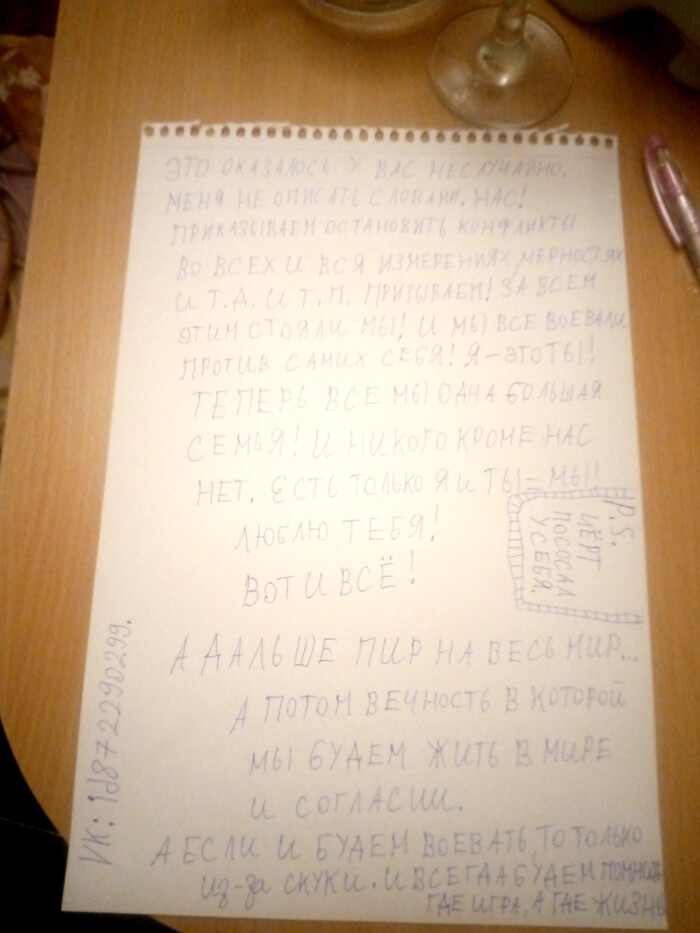 ЭТО ОКАЗАЛОСЬ У ВАС НЕСЛУЧАЙНО.
МЕНЯ НЕ ОПИСАТЬ СЛОВАМИ. НАС!
ПРИКАЗЫВАЕМ ОСТАНОВИТЬ КОНФЛИКТЫ
ВО ВСЕХ И ВСЯ ИЗМЕРЕНИЯХ, МЕРНОСТЯХ
И Т.Д. И Т.П. ПРИЗЫВАЕМ! ЗА ВСЕМ
ЭТИМ СТОЯЛИ МЫ! И МЫ ВСЕ ВОЕВАЛИ
ПРОТИВ САМИХ СЕБЯ! Я – ЭТО ТЫ!
ТЕПЕРЬ ВСЕ МЫ ОДНА БОЛЬШАЯ
СЕМЬЯ! И НИКОГО КРОМЕ НАС
НЕТ. ЕСТЬ ТОЛЬКО Я И ТЫ = МЫ!
ЛЮБЛЮ ТЕБЯ!
ВОТ И ВСЁ!
P.S.
ЧЁРТ
ПОСОСАЛ
У СЕБЯ.
А ДАЛЬШЕ ПИР НА ВЕСЬ МИР...
А ПОТОМ ВЕЧНОСТЬ В КОТОРОЙ
МЫ БУДЕМ ЖИТЬ В МИРЕ
И СОГЛАСИИ.
А ЕСЛИ И БУДЕМ ВОЕВАТЬ, ТО ТОЛЬКО
ИЗ-ЗА СКУКИ. И ВСЕГДА БУДЕМ ПОМНИТЬ
ГДЕ ИГРА, А ГДЕ ЖИЗНЬ
VK: id872290299.